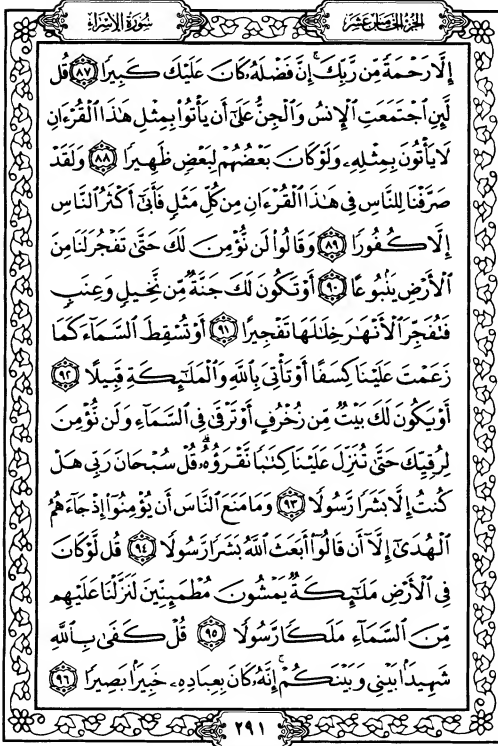 سُورَةُ الإِسْرَاءِ
الجُزْءُ الخَامِسَ عَشَرَ
إِلَّا رَحْمَةً مِّن رَّبِّكَ ۚ إِنَّ فَضْلَهُۥ كَانَ عَلَيْكَ كَبِيرًا ۝٨٧ قُل
لَّئِنِ ٱجْتَمَعَتِ ٱلْإِنسُ وَٱلْجِنُّ عَلَىٰٓ أَن يَأْتُوا۟ بِمِثْلِ هَٰذَا ٱلْقُرْءَانِ
لَا يَأْتُونَ بِمِثْلِهِۦ وَلَوْ كَانَ بَعْضُهُمْ لِبَعْضٍ ظَهِيرًا ۝٨٨ وَلَقَدْ
صَرَّفْنَا لِلنَّاسِ فِى هَٰذَا ٱلْقُرْءَانِ مِن كُلِّ مَثَلٍ فَأَبَىٰٓ أَكْثَرُ ٱلنَّاسِ
إِلَّا كُفُورًا ۝٨٩ وَقَالُوا۟ لَن نُّؤْمِنَ لَكَ حَتَّىٰ تَفْجُرَ لَنَا مِنَ
ٱلْأَرْضِ يَنۢبُوعًا ۝٩٠ أَوْ تَكُونَ لَكَ جَنَّةٌ مِّن نَّخِيلٍ وَعِنَبٍ
فَتُفَجِّرَ ٱلْأَنْهَٰرَ خِلَٰلَهَا تَفْجِيرًا ۝٩١ أَوْ تُسْقِطَ ٱلسَّمَآءَ كَمَا
زَعَمْتَ عَلَيْنَا كِسَفًا أَوْ تَأْتِىَ بِٱللَّهِ وَٱلْمَلَٰٓئِكَةِ قَبِيلًا ۝٩٢
أَوْ يَكُونَ لَكَ بَيْتٌ مِّن زُخْرُفٍ أَوْ تَرْقَىٰ فِى ٱلسَّمَآءِ وَلَن نُّؤْمِنَ
لِرُقِيِّكَ حَتَّىٰ تُنَزِّلَ عَلَيْنَا كِتَٰبًا نَّقْرَؤُهُۥ ۗ قُلْ سُبْحَانَ رَبِّى هَلْ
كُنتُ إِلَّا بَشَرًا رَّسُولًا ۝٩٣ وَمَا مَنَعَ ٱلنَّاسَ أَن يُؤْمِنُوٓا۟ إِذْ جَآءَهُمُ
ٱلْهُدَىٰٓ إِلَّآ أَن قَالُوٓا۟ أَبَعَثَ ٱللَّهُ بَشَرًا رَّسُولًا ۝٩٤ قُل لَّوْ كَانَ
فِى ٱلْأَرْضِ مَلَٰٓئِكَةٌ يَمْشُونَ مُطْمَئِنِّينَ لَنَزَّلْنَا عَلَيْهِم
مِّنَ ٱلسَّمَآءِ مَلَكًا رَّسُولًا ۝٩٥ قُلْ كَفَىٰ بِٱللَّهِ
شَهِيدًۢا بَيْنِى وَبَيْنَكُمْ ۚ إِنَّهُۥ كَانَ بِعِبَادِهِۦ خَبِيرًۢا بَصِيرًا ۝٩٦
٢٩١